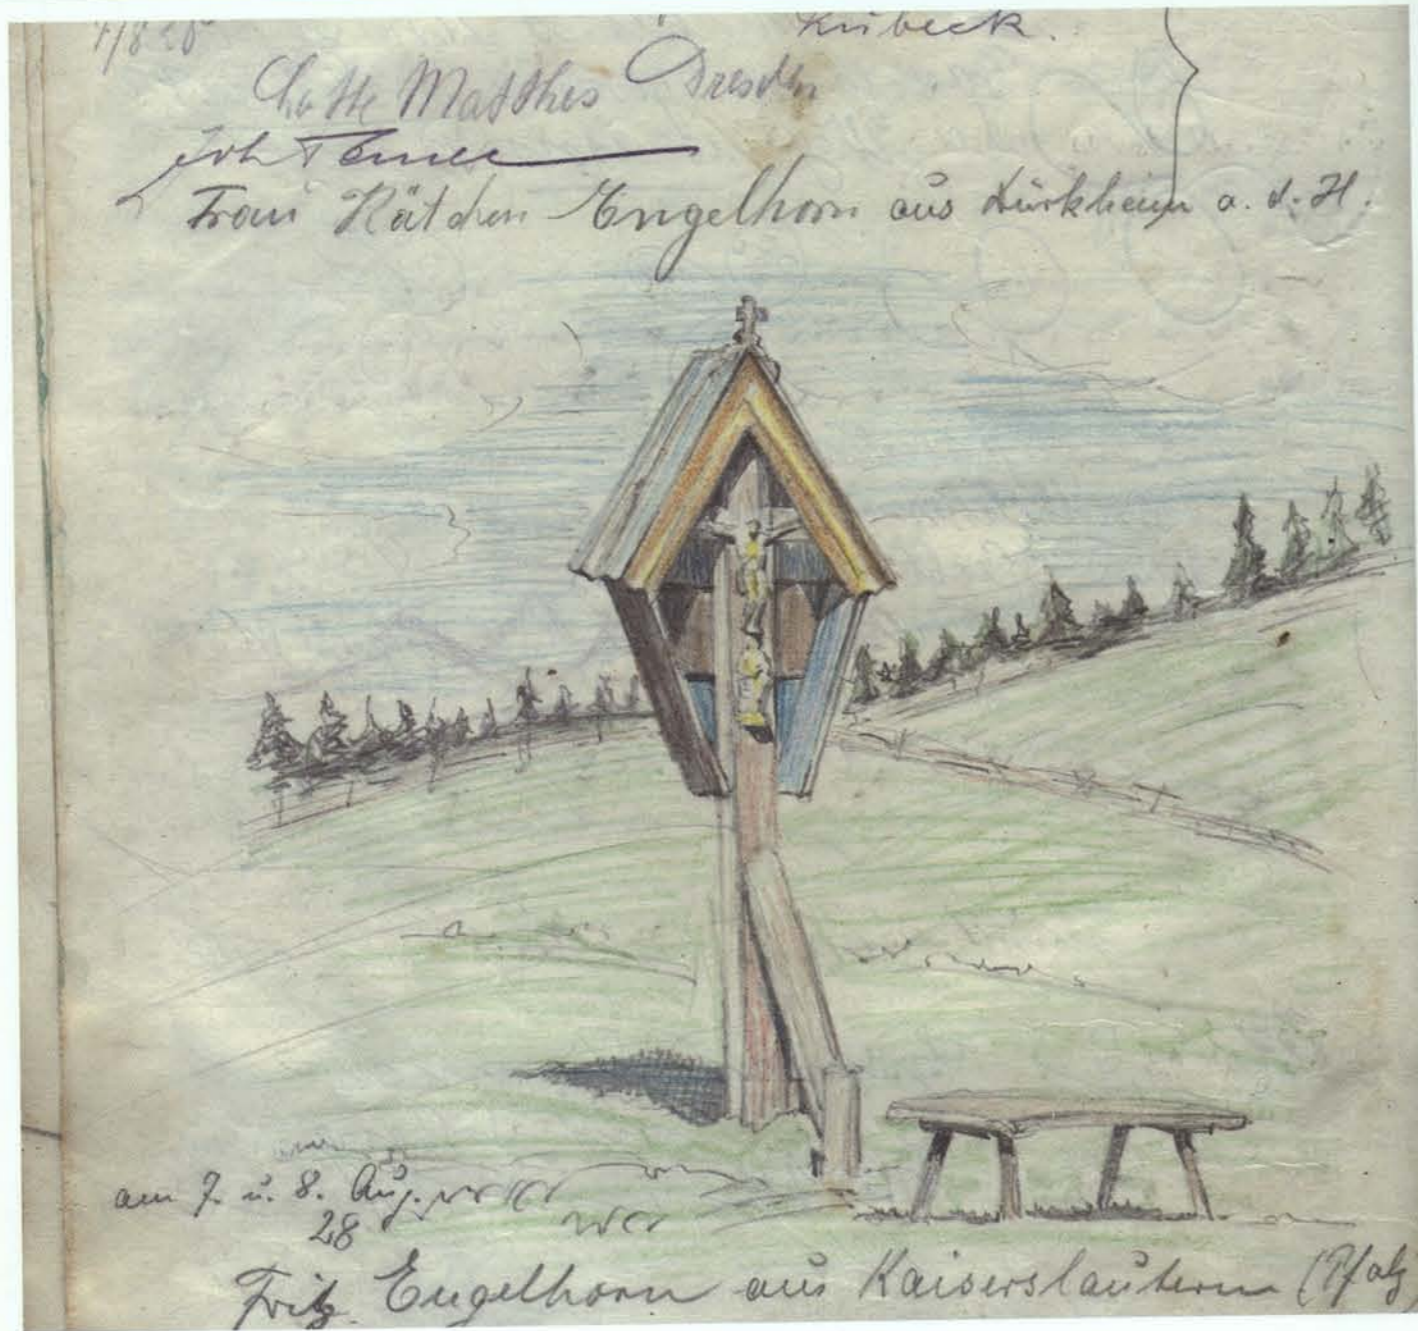 Lübeck.
Lotte Matthes Dresden
Frau Kätchen Engelhorn aus Dürkheim a. d. H.
am 7. u. 8. Aug.
28
Fritz Engelhorn aus Kaiserslautern (Pfalz)